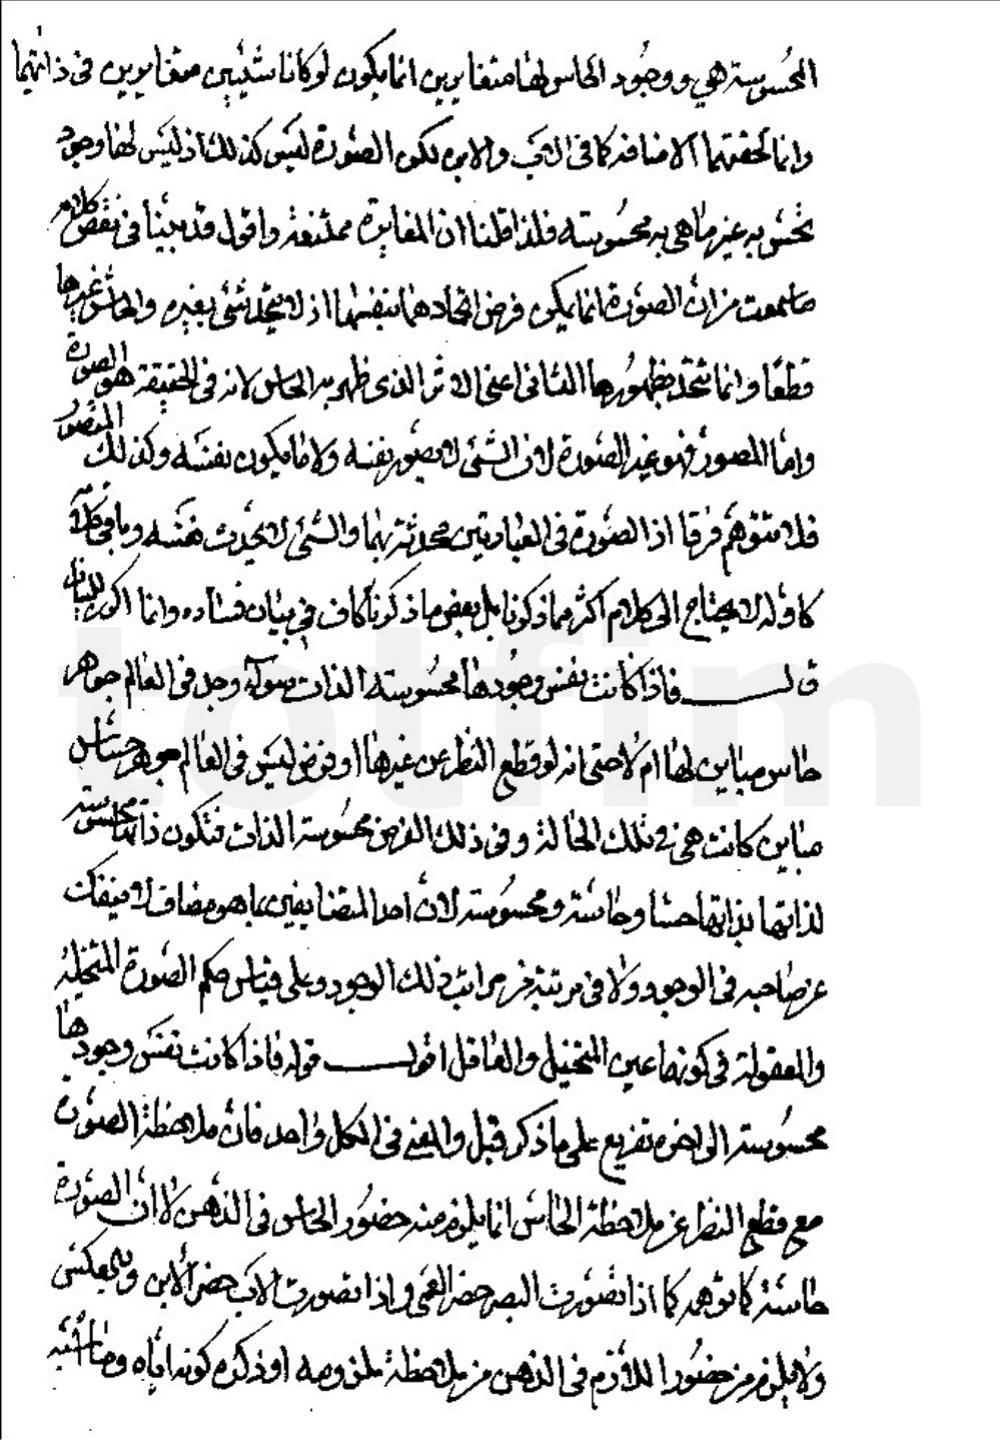 المحسوسة هي ووجود الحاس لها متغايرين انما يكون لو كانا شيئين متغايرين في ذاتيهما
وانما لحقتهما الاضافة كما في الاب والابن لكن الصورة ليس كذلك اذ ليس لها وجود
تحس به غير ما هي به محسوسة فلذا قلنا ان المغايرة ممتنعة واقول قد بينا في نقض كلامه
ما سمعت من ان الصورة انما يمكن فرض اتحادهما بنفسها اذ لا يتحد شئ بغيره والحاس غيرها
قطعا وانما تتحد بظهورها الثاني اعني الاثر الذي ظهر به الحاس لانه في الحقيقة هو الصورة
واما المصور فهو غير الصورة لان الشئ لا يصور نفسه ولا ما يكون بنفسه وكذلك المتصور
فلا تتوهم فرقا اذ الصورة في العبارتين محدثة بهما والشئ لا يحدث نفسه وباقي كلامه
كاوله لا يحتاج الى كلام اكثر مما ذكرنا بل بعض ما ذكرنا كاف في بيان فساده وانما اكرر للبيان
قال فاذا كانت نفس وجودها محسوسة الذات سواء وجد في العالم جوهر
حاس مباين لها ام لا حتى انه لو قطع النظر عن غيرها او فرض ليس في العالم جوهر حساس
مباين كانت هي في تلك الحالة وفي ذلك الفرض محسوسة الذات فتكون ذاتها محسوسة
لذاتها بذاتها حسا وحاسة ومحسوسة لان احد المتضايفين بما هو مضاف لا ينفك
عن صاحبه في الوجود ولا في مرتبة من مراتب ذلك الوجود وعلى قياس حكم الصورة المتخيلة
والمعقولة في كونها عين المتخيل والعاقل اقول قوله فاذا كانت نفس وجودها
محسوسة الى اخره تفريع على ما ذكر قبل والمعنى في الكل واحد فان ملاحظة الصورة
مع قطع النظر عن ملاحظة الحاس انما يلزم منه حضور الحاس في الذهن لا ان الصورة
حاسة كما توهمه كما اذا تصورت البصر حضر العمى واذا تصورت الاب حضر الابن وبالعكس
ولا يلزم من حضور اللازم في الذهن من ملاحظة ملزومه او ذكره كونه اياه وما اشبه